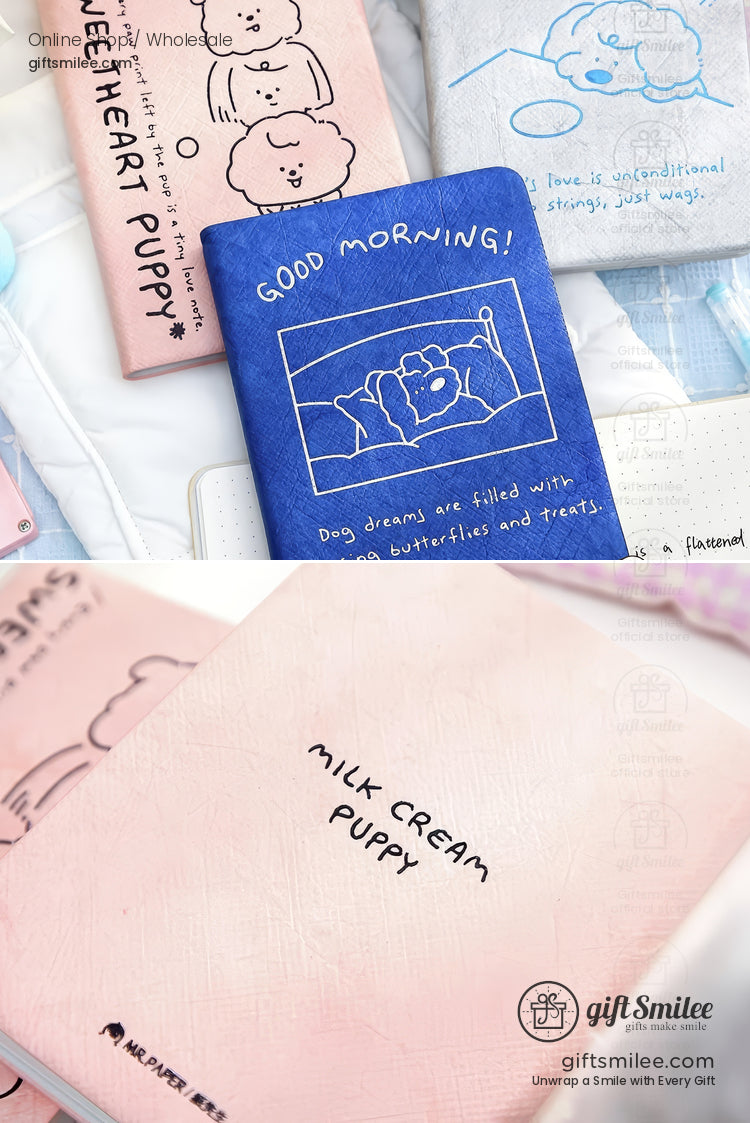 Online Shop/ Wholesale
giftsmilee.com
SWEETHEART PUPPY*
paw print left by the pup is a tiny love note.
love is unconditional
strings, just wags.
GOOD MORNING!
Dog dreams are filled with
butterflies and treats.
is a flattened
MILK CREAM
PUPPY
MR.PAPER/
gift Smilee
gifts make smile
giftsmilee.com
Unwrap a Smile with Every Gift
gift Smilee
Giftsmilee
official store